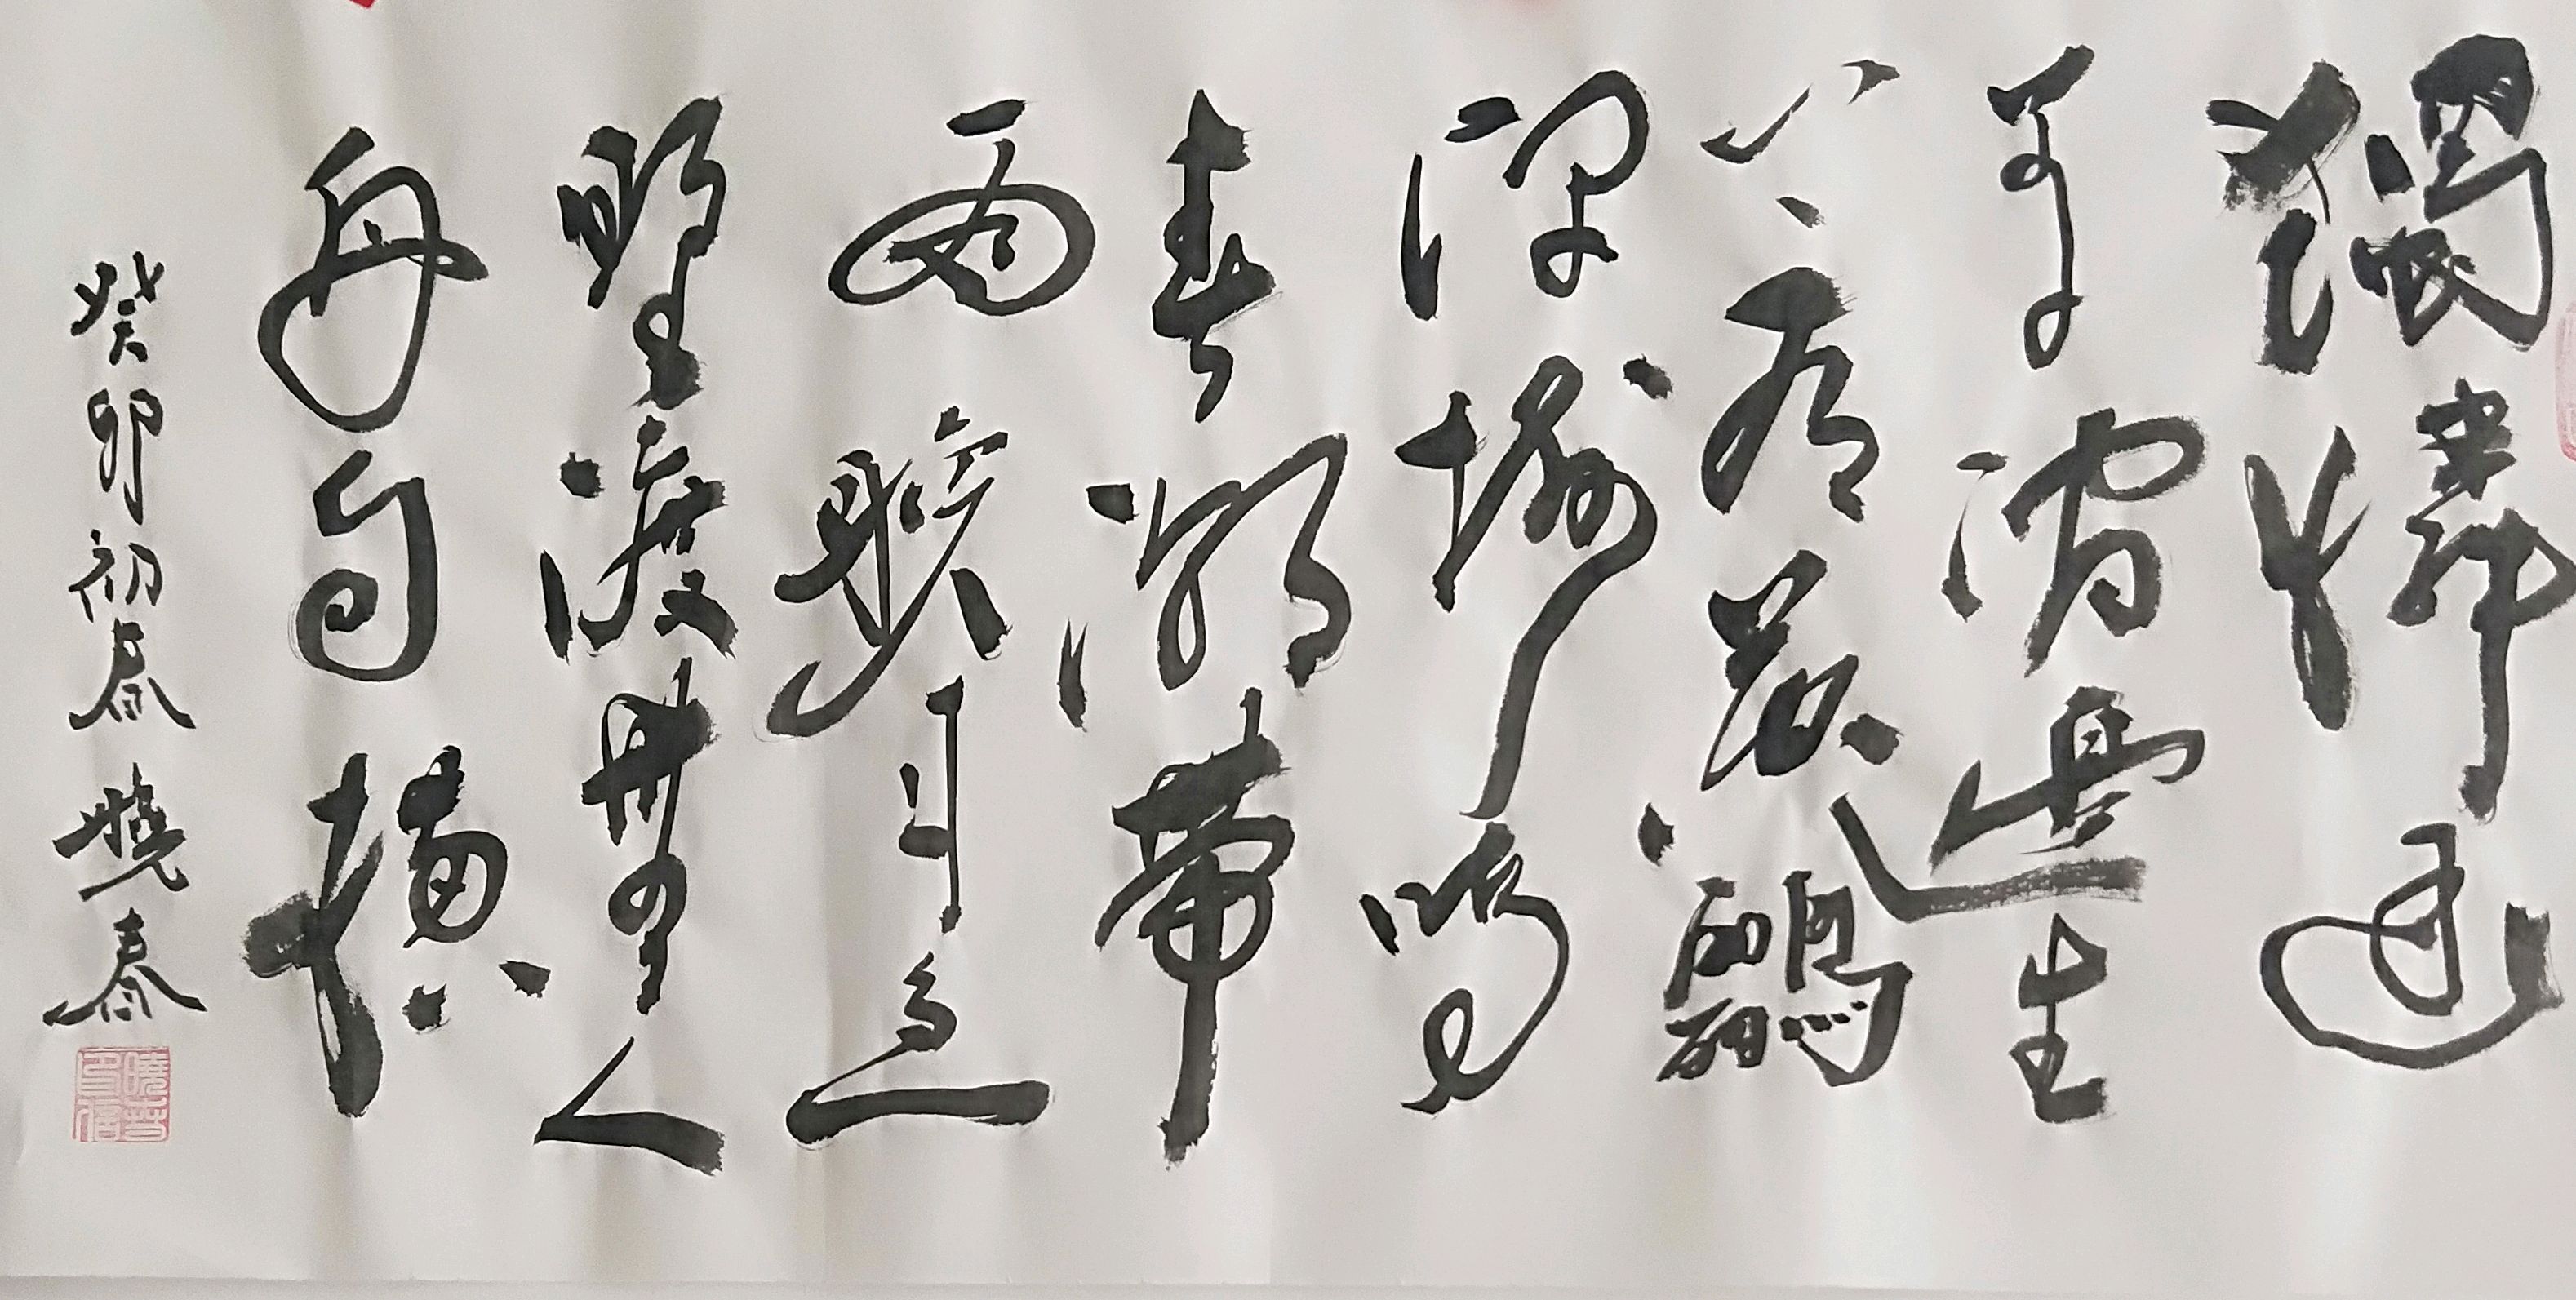 獨憐幽
草澗邊生
上有黃鸝
深樹鳴
春潮帶
雨晚來急
野渡無人
舟自橫
癸卯初春曉春